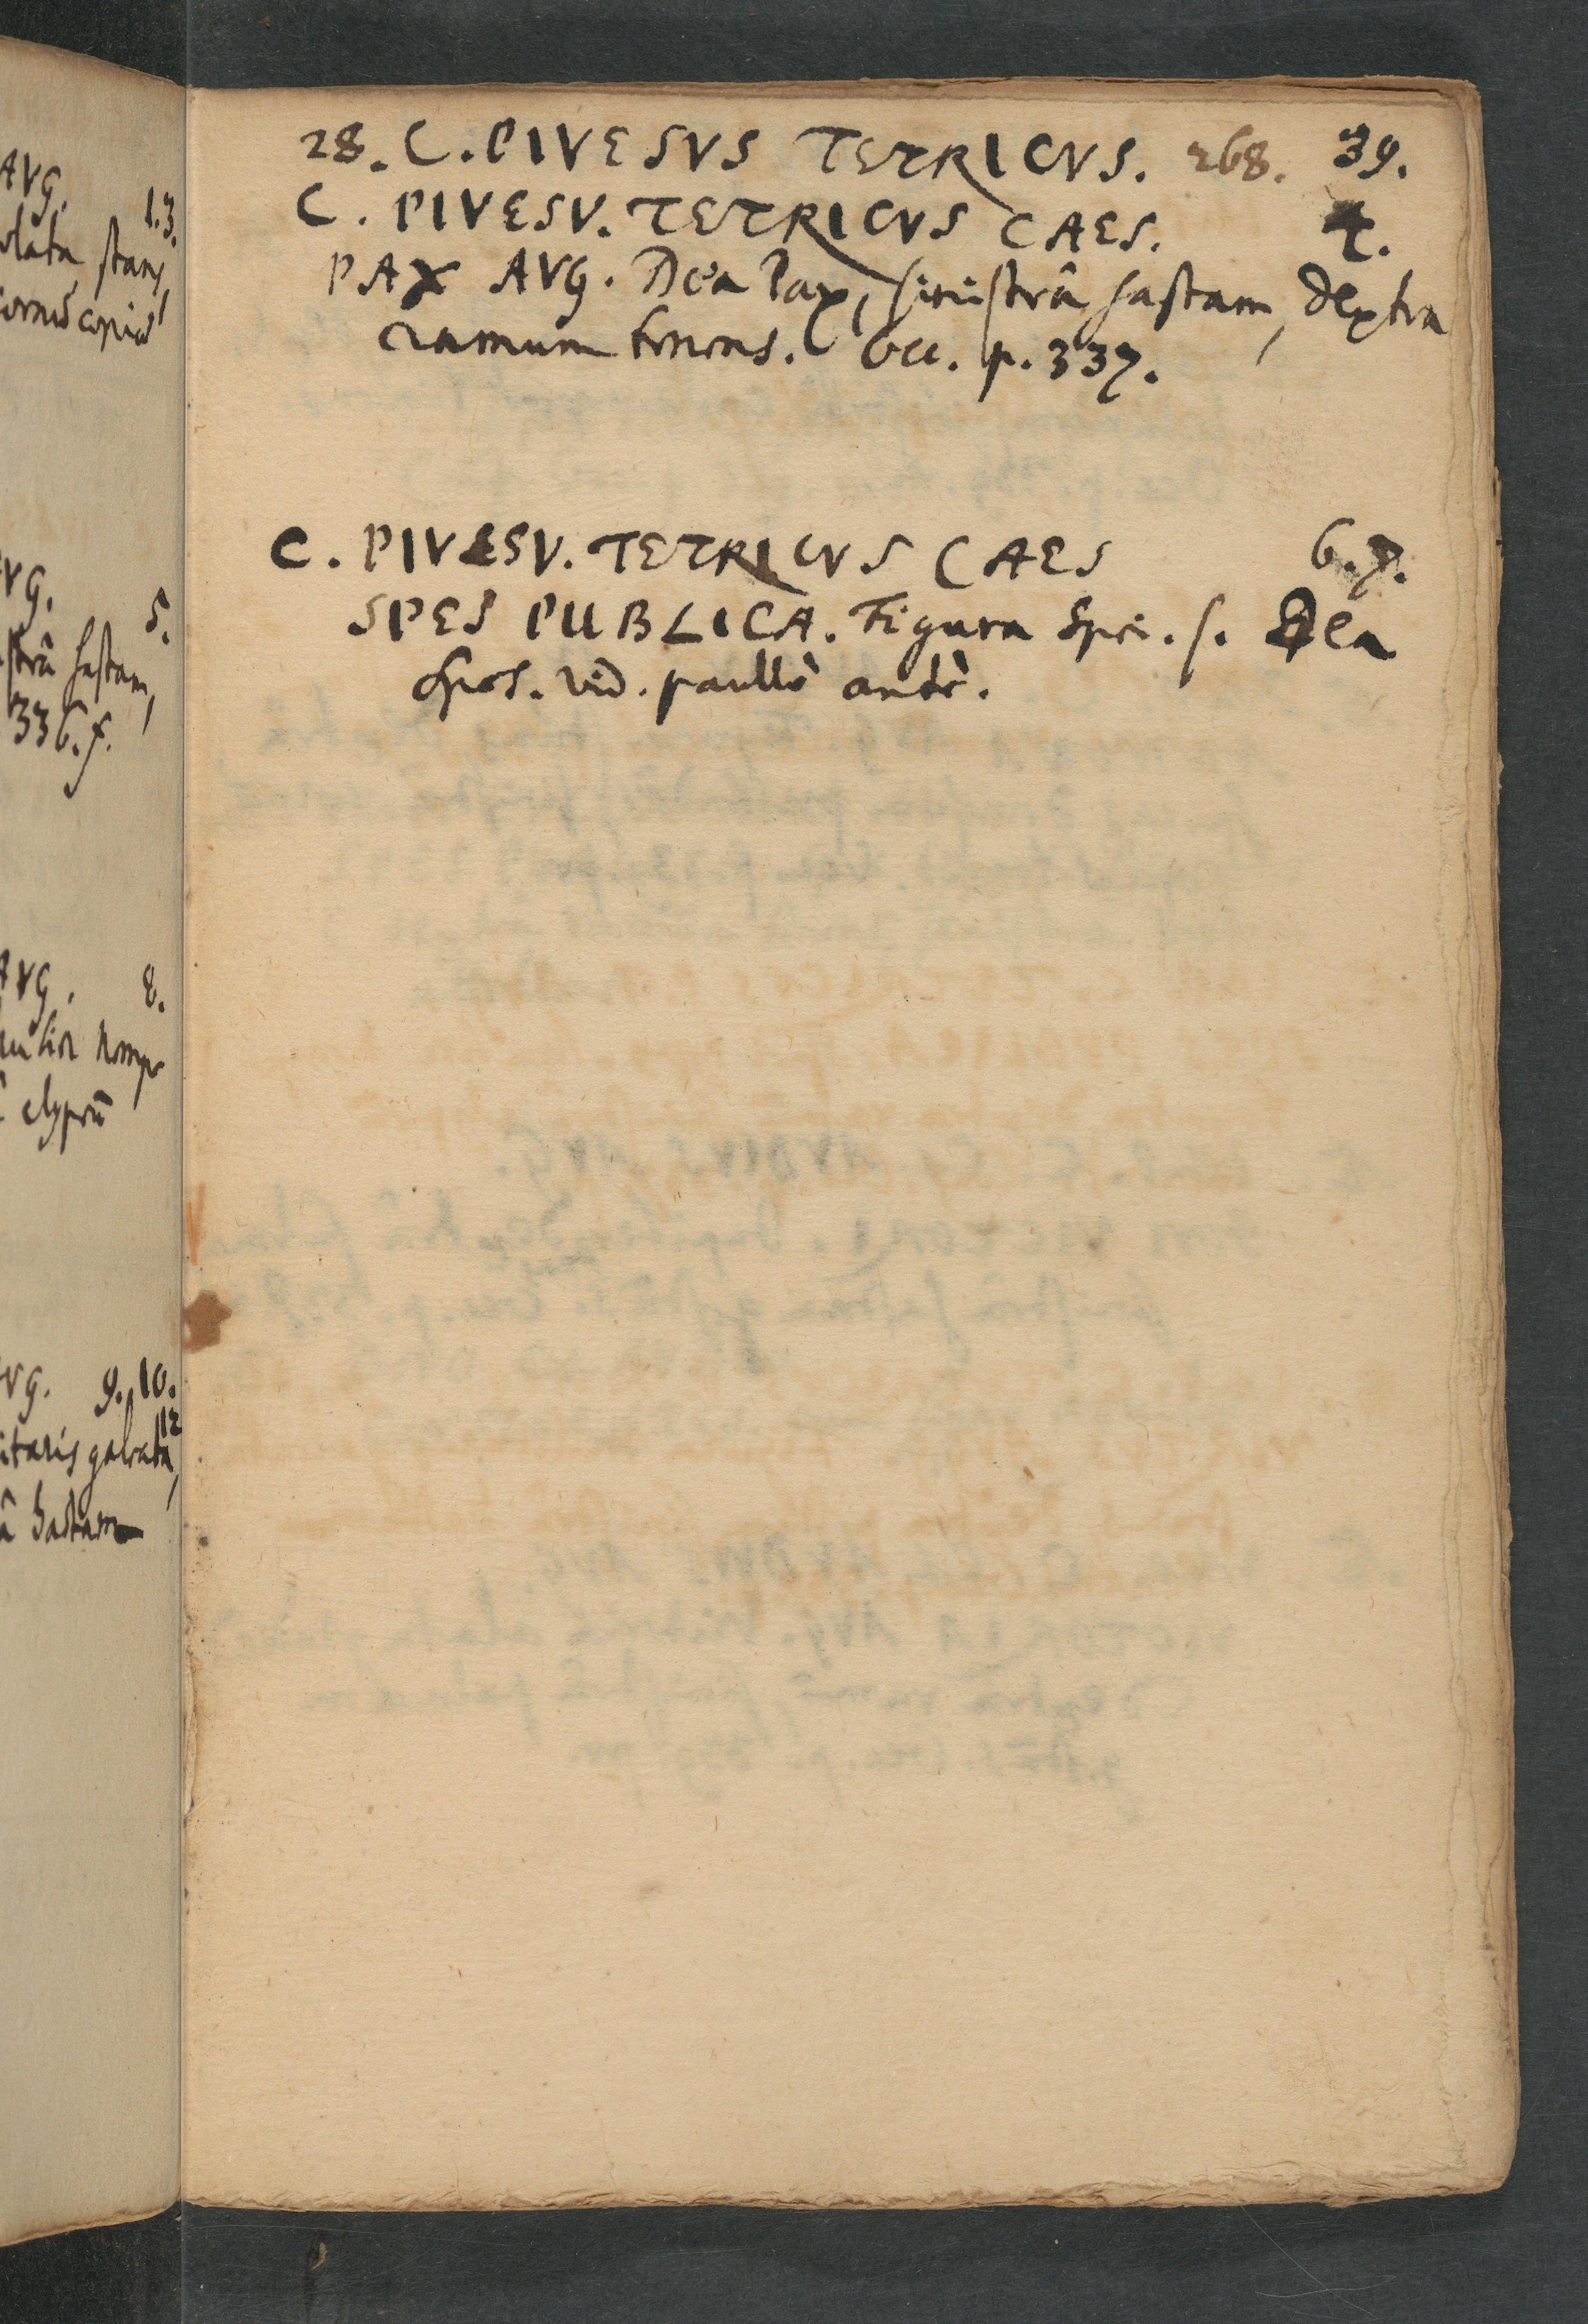 AVG. 1.3.
stans,
cornucopiā
VG. 5.
strâ hastam,
336. f.
AVG. 8.
clypeū
VG. 9. 10.
12
itaris galeata,
â hastam
28. C. PIVESVS TETRICVS. 268. 39.
C. PIVESV. TETRICVS CAES. 4.
PAX AVG. Dea Pax, sinistrâ hastam, dextra
ramum tenens. Occ. p. 337.
C. PIVESV. TETRICVS CAES 6.7.
SPES PUBLICA. Figura Spei. s. Dea
Spes. vid. paullò antè.